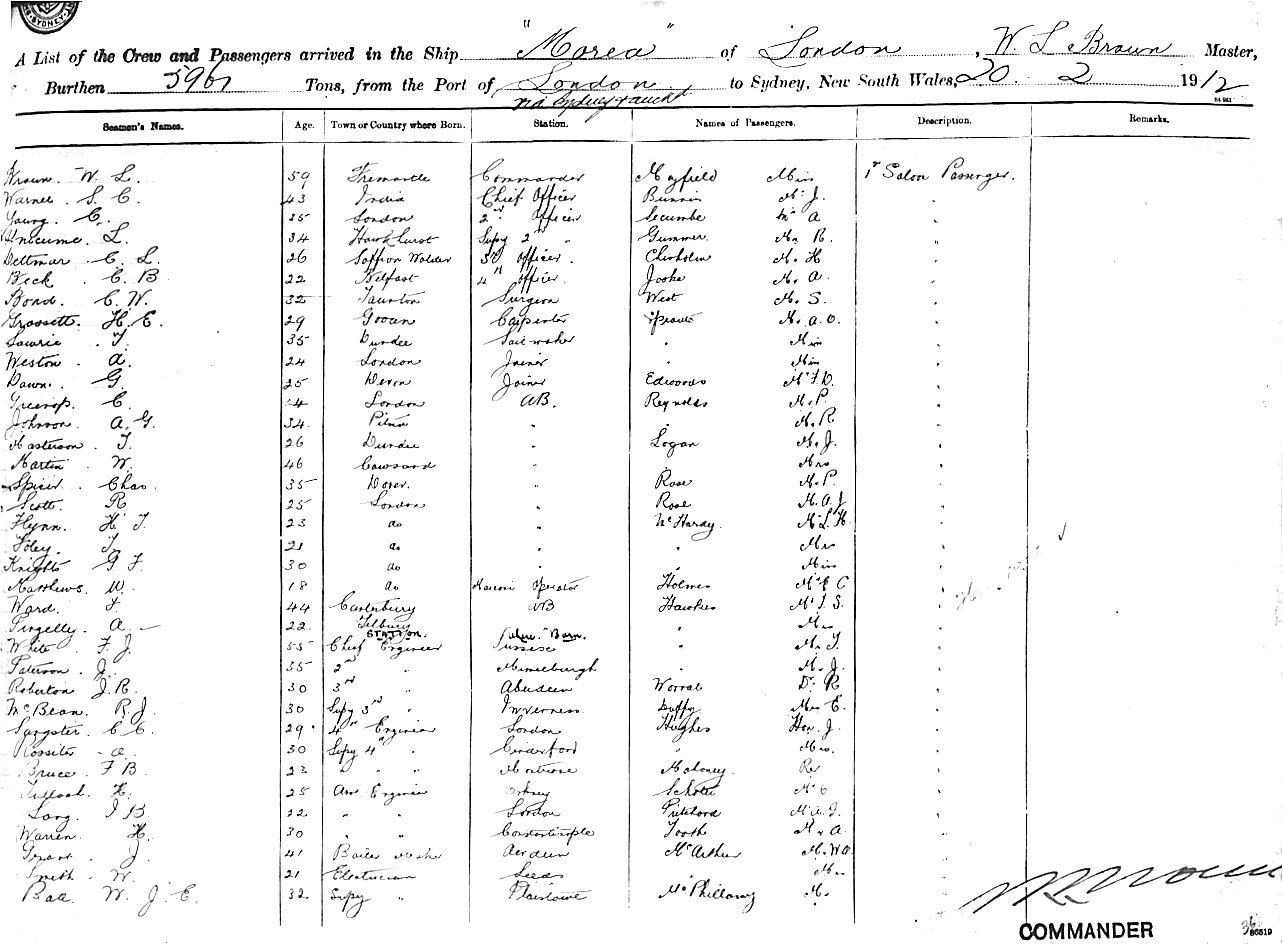 SYDNEY
A List of the Crew and Passengers arrived in the Ship "Morea" of London, W. L Brown Master,
Burthen 5961 Tons, from the Port of London to Sydney, New South Wales, 20. 2 1912
via Sydney
Seamen's Names. Age. Town or Country where Born. Station. Names of Passengers. Description. Remarks.
Brown W. L. 59 Fremantle Commander Mayfield Miss 1st Saloon Passenger.
S. C. 43 India Chief Officer Mr J.
Young C. 35 London 2nd Officer Secombe Mr A
L. 34 Hawkhurst Supy 2nd " Gummer Mr R.
Dettmar C. L. 26 Saffron Walden 3rd Officer. Chisholm Mr H
Beck C. B 22 Belfast 4th Officer. Mr A.
Bond. C. W. 32 Taunton Surgeon West Mr S.
Grossett H. E. 29 Govan Carpenter Mr A. O.
Lawrie T. 35 Dundee Sailmaker " Miss
Weston A. 24 London Joiner " Miss
Dawn. G. 25 Devon Joiner Edwards Mr F. D.
C. London AB. Reynolds Mr P
Johnson A. G. 34. " Mr R
Masterson T. 26 Dundee " Logan Mr J.
Martin W. 46 Cawsand " Mrs
Spicer Chas. 35 Dover. " Rose Mr P.
Scott. R 25 London " Rose Mr A. J.
Flynn. H. T. 23 do " McHardy. Mr L. H.
Foley. T. 21 do " " Mrs
Knights G F. 30 do " " Miss
Matthews. W. 18 do Marconi Operator Holmes Mr E C
Ward. F. 44 Canterbury AB Hawkes Mr S.
A. 22. Tilbury " "
STATION. Where Born.
White F. J. 55 Chief Engineer Sussex " Mr T.
Paterson J. 35 2nd " Musselburgh " Mr J.
Roberton J. R. 30 3rd " Aberdeen Worral Dr R
McBean. R. J 30 Supy 3rd " Inverness. Duffy Mr E.
Sangster. C C. 29 4th Engineer London Hughes Hon. J.
Rossiter A. 30 Supy 4th " Cinderford " Mrs.
Bruce F B. 23 " " Montrose Maloney. Rev
Tulloch. H. 25 Asst Engineer Orkney Mr C
Lang. J B. 22 " " London Pritchard Mr A. G.
Warren H. 30 " " Constantinople Tooth Mr A.
Grant J. 41 Boiler Maker Aberdeen McArthur Mr W A
Smith W. 21 Electrician Leeds "
Ball W. J. E. 32. Supy " Plaistowe McPhillamy Mr
COMMANDER
36
86519